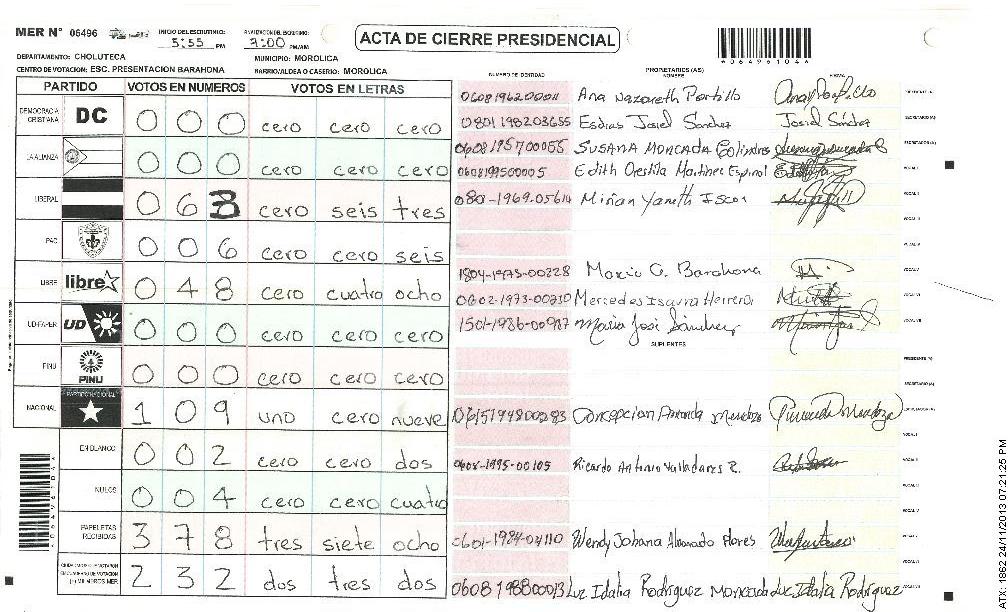 MER N° 06496 INICIO DEL ESCRUTINIO: 5:55 PM 7:00 PM/AM
ACTA DE CIERRE PRESIDENCIAL
*06496104*
DEPARTAMENTO: CHOLUTECA MUNICIPIO: MOROLICA
CENTRO DE VOTACION: ESC. PRESENTACION BARAHONA BARRIO/ALDEA O CASERIO: MOROLICA
PARTIDO VOTOS EN NUMEROS VOTOS EN LETRAS
NUMERO DE IDENTIDAD PROPIETARIOS (AS) NOMBRE FIRMA
DEMOCRACIA CRISTIANA DC 0 0 0 cero cero cero
LA ALIANZA 0 0 0 cero cero cero
LIBERAL 0 6 3 cero seis tres
PAC 0 0 6 cero cero seis
LIBRE libre 0 4 8 cero cuatro ocho
UD-FAPER UD 0 0 0 cero cero cero
PINU PINU 0 0 0 cero cero cero
NACIONAL PARTIDO NACIONAL 1 0 9 uno cero nueve
EN BLANCO 0 0 2 cero cero dos
NULOS 0 0 4 cero cero cuatro
PAPELETAS RECIBIDAS 3 7 8 tres siete ocho
CIUDADANOS QUE VOTARON EN CUADERNO DE VOTACION (+) MIEMBROS MER 2 3 2 dos tres dos
Ana Nazareth Portillo
0801198203655 Esdras Josiel Sanchez Josiel Sánchez
0608195700055 SUSANA MONCADA Colindres
Edith Orestila Martinez Espinal
Mirian Yaneth Iscoa
1804-1973-00228 Marcio O. Barahona
0602-1973-00230 Mercedes Isaura Herrera
1501-1986-00927 Maria José Sánchez
SUPLENTES
0615199800283 Concepcion Armanda Mendoza
0608-1995-00105 Ricardo Antonio Valladares R.
0601-1984-04110 Wendy Johana Alvarado Flores
0608198800013 Luz Idalia Rodriguez Moncada Luz Idalia Rodriguez
*06496104*
ATX: 1862 24/11/2013 07:21:25 PM